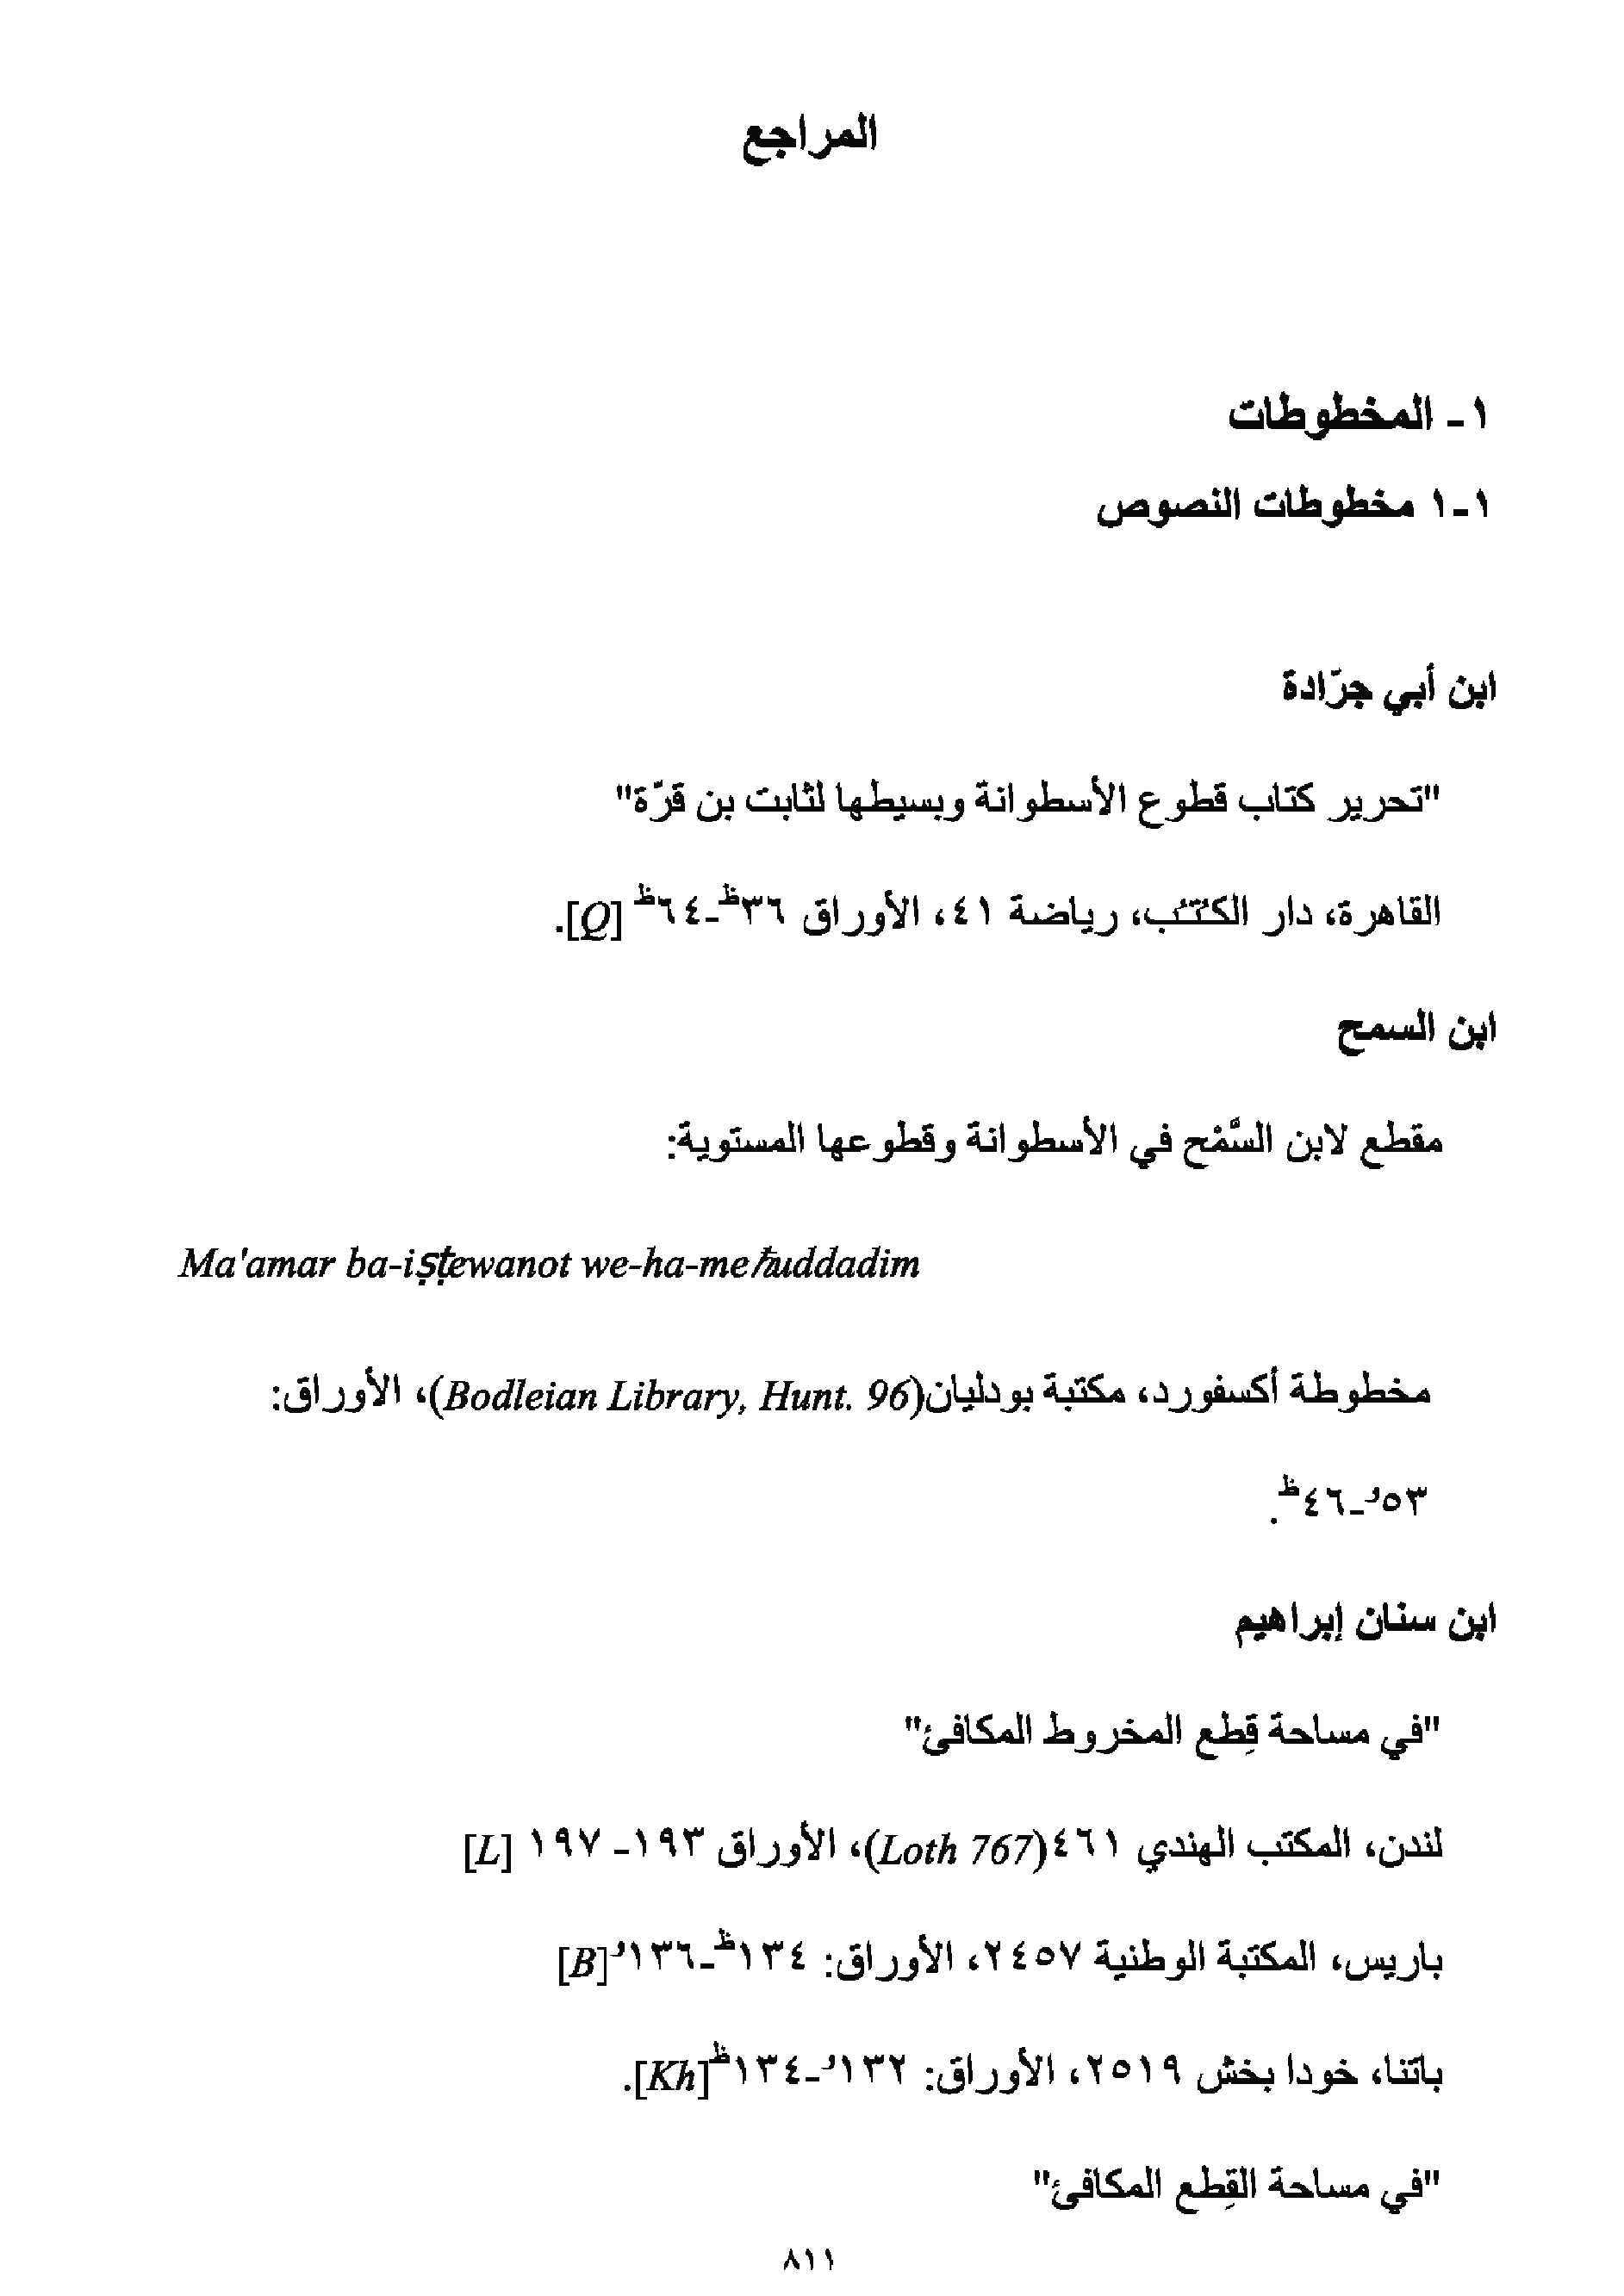 المراجع
١- المخطوطات
١-١ مخطوطات النصوص
ابن أبي جرّادة
"تحرير كتاب قطوع الأسطوانة وبسيطها لثابت بن قرّة"
القاهرة، دار الكُتُب، رياضة ٤١، الأوراق ٣٦ظ-٦٤ظ [Q].
ابن السمح
مقطع لابن السَّمْح في الأسطوانة وقطوعها المستوية:
Ma'amar ba-iṣṭewanot we-ha-meħuddadim
مخطوطة أكسفورد، مكتبة بودليان(Bodleian Library, Hunt. 96)، الأوراق:
٥٣و-٤٦ظ.
ابن سنان إبراهيم
"في مساحة قِطع المخروط المكافئ"
لندن، المكتب الهندي ٤٦١(Loth 767)، الأوراق ١٩٣- ١٩٧ [L]
باريس، المكتبة الوطنية ٢٤٥٧، الأوراق: ١٣٤ظ-١٣٦و[B]
باتنا، خودا بخش ٢٥١٩، الأوراق: ١٣٢و-١٣٤ظ[Kh].
"في مساحة القِطع المكافئ"
٨١١